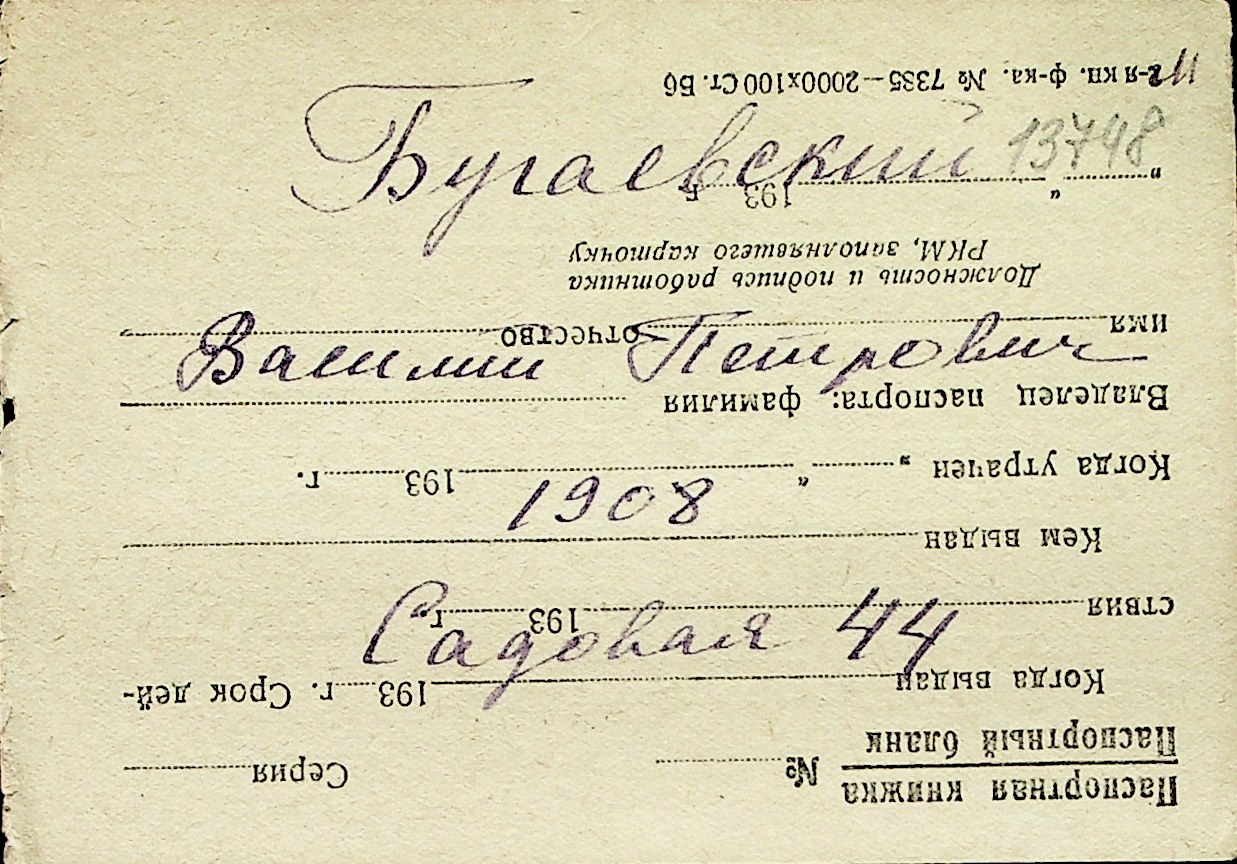 Бугаевский 13748
Василий Петрович
1908
Садовая 44
Паспортная книжка
Паспортный бланк № Серия
Когда выдан 193 г. Срок дей-
ствия 193 г.
Кем выдан
Когда утрачен „ “ 193 г.
Владелец паспорта: фамилия
имя отчество
Должность и подпись работника
РКМ, заполнявшего карточку
„ “ 193 г.
2-я кп. ф-ка. № 7335—2000х100 Ст. Вб